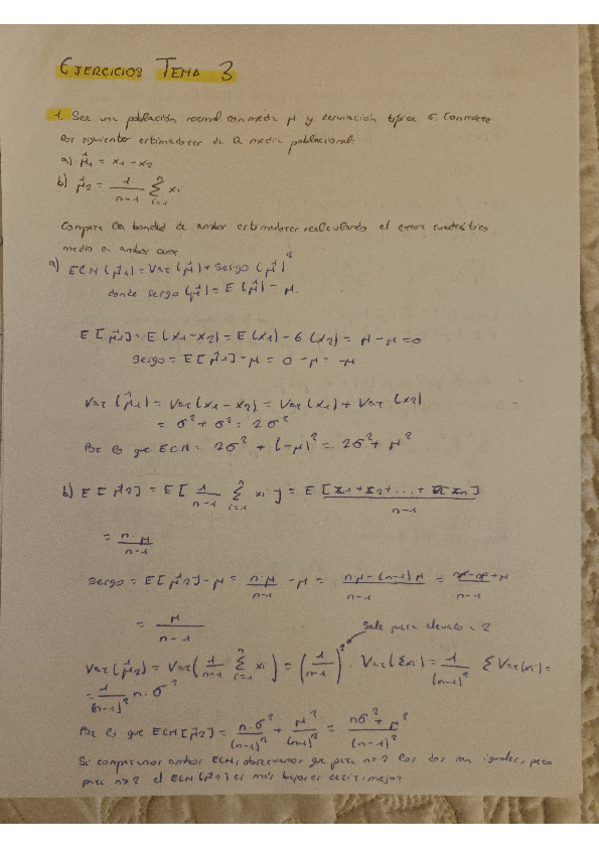 EJERCICIOS TEMA 3
1. Sea una población normal con media μ y desviación típica σ. Considere
los siguientes estimadores de la media poblacional:
a) μ̂1 = x1 - x2
b) μ̂2 = 1/(n-1) Σ_{i=1}^{n} xi
Compare la bondad de ambos estimadores calculando el error cuadrático
medio en ambos
a) ECM(μ̂1) = Var(μ̂) + Sesgo(μ̂)²
donde sesgo(μ̂) = E(μ̂) - μ.
E[μ̂1] = E(x1-x2) = E(x1) - E(x2) = μ - μ = 0
sesgo = E[μ̂1] - μ = 0 - μ = -μ
Var(μ̂1) = Var(x1-x2) = Var(x1) + Var(x2)
= σ² + σ² = 2σ²
Por lo que ECM = 2σ² + (-μ)² = 2σ² + μ²
b) E[μ̂2] = E[1/(n-1) Σ_{i=1}^{n} xi] = E[x1+x2+...+xn]/(n-1)
= n·μ/(n-1)
sesgo = E[μ̂2] - μ = n·μ/(n-1) - μ = (nμ-(n-1)μ)/(n-1) = /(n-1)
= μ/(n-1)
Sale para elevado a 2
Var(μ̂2) = Var(1/(n-1) Σ_{i=1}^{n} xi) = (1/(n-1))² · Var(Σxi) = 1/(n-1)² ΣVar(xi) =
= 1/(n-1)² n·σ²
Por lo que ECM[μ̂2] = n·σ²/(n-1)² + μ²/(n-1)² = (nσ²+μ²)/(n-1)²
Si comparamos ambos ECM, observamos que para n=2 los dos son iguales, pero
para n>2 el ECM(μ̂2) es más bajo es decir mejor